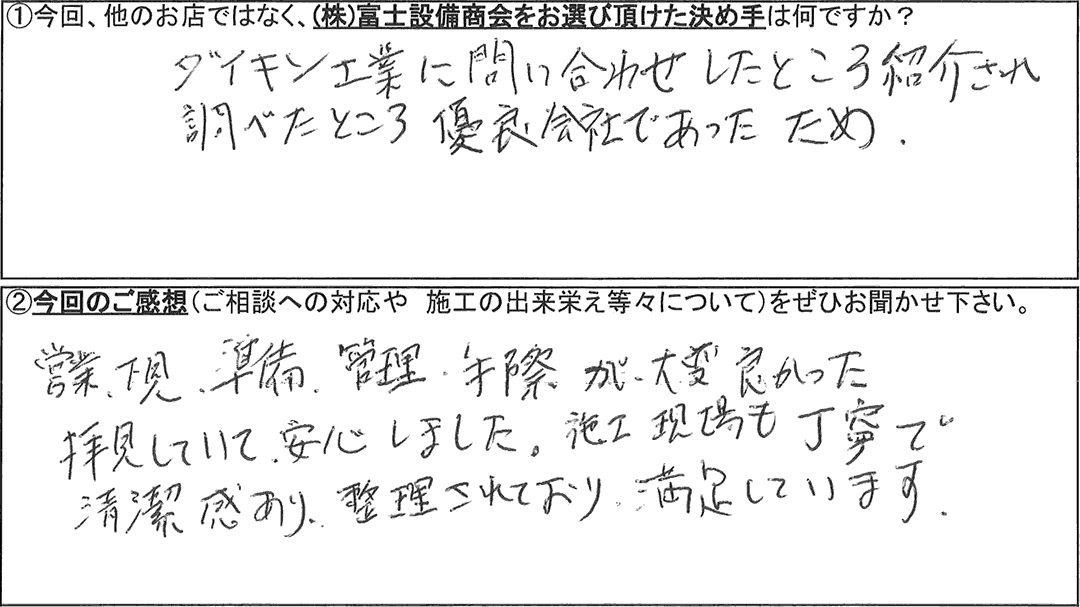 ①今回、他のお店ではなく、(株)富士設備商会をお選び頂けた決め手は何ですか？
ダイキン工業に問い合わせしたところ紹介され
調べたところ優良会社であったため.
②今回のご感想(ご相談への対応や　施工の出来栄え等々について)をぜひお聞かせ下さい。
営業、下見、準備、管理、手際が大変良かった
拝見していて、安心しました。施工現場も丁寧で
清潔感あり、整理されており、満足しています.